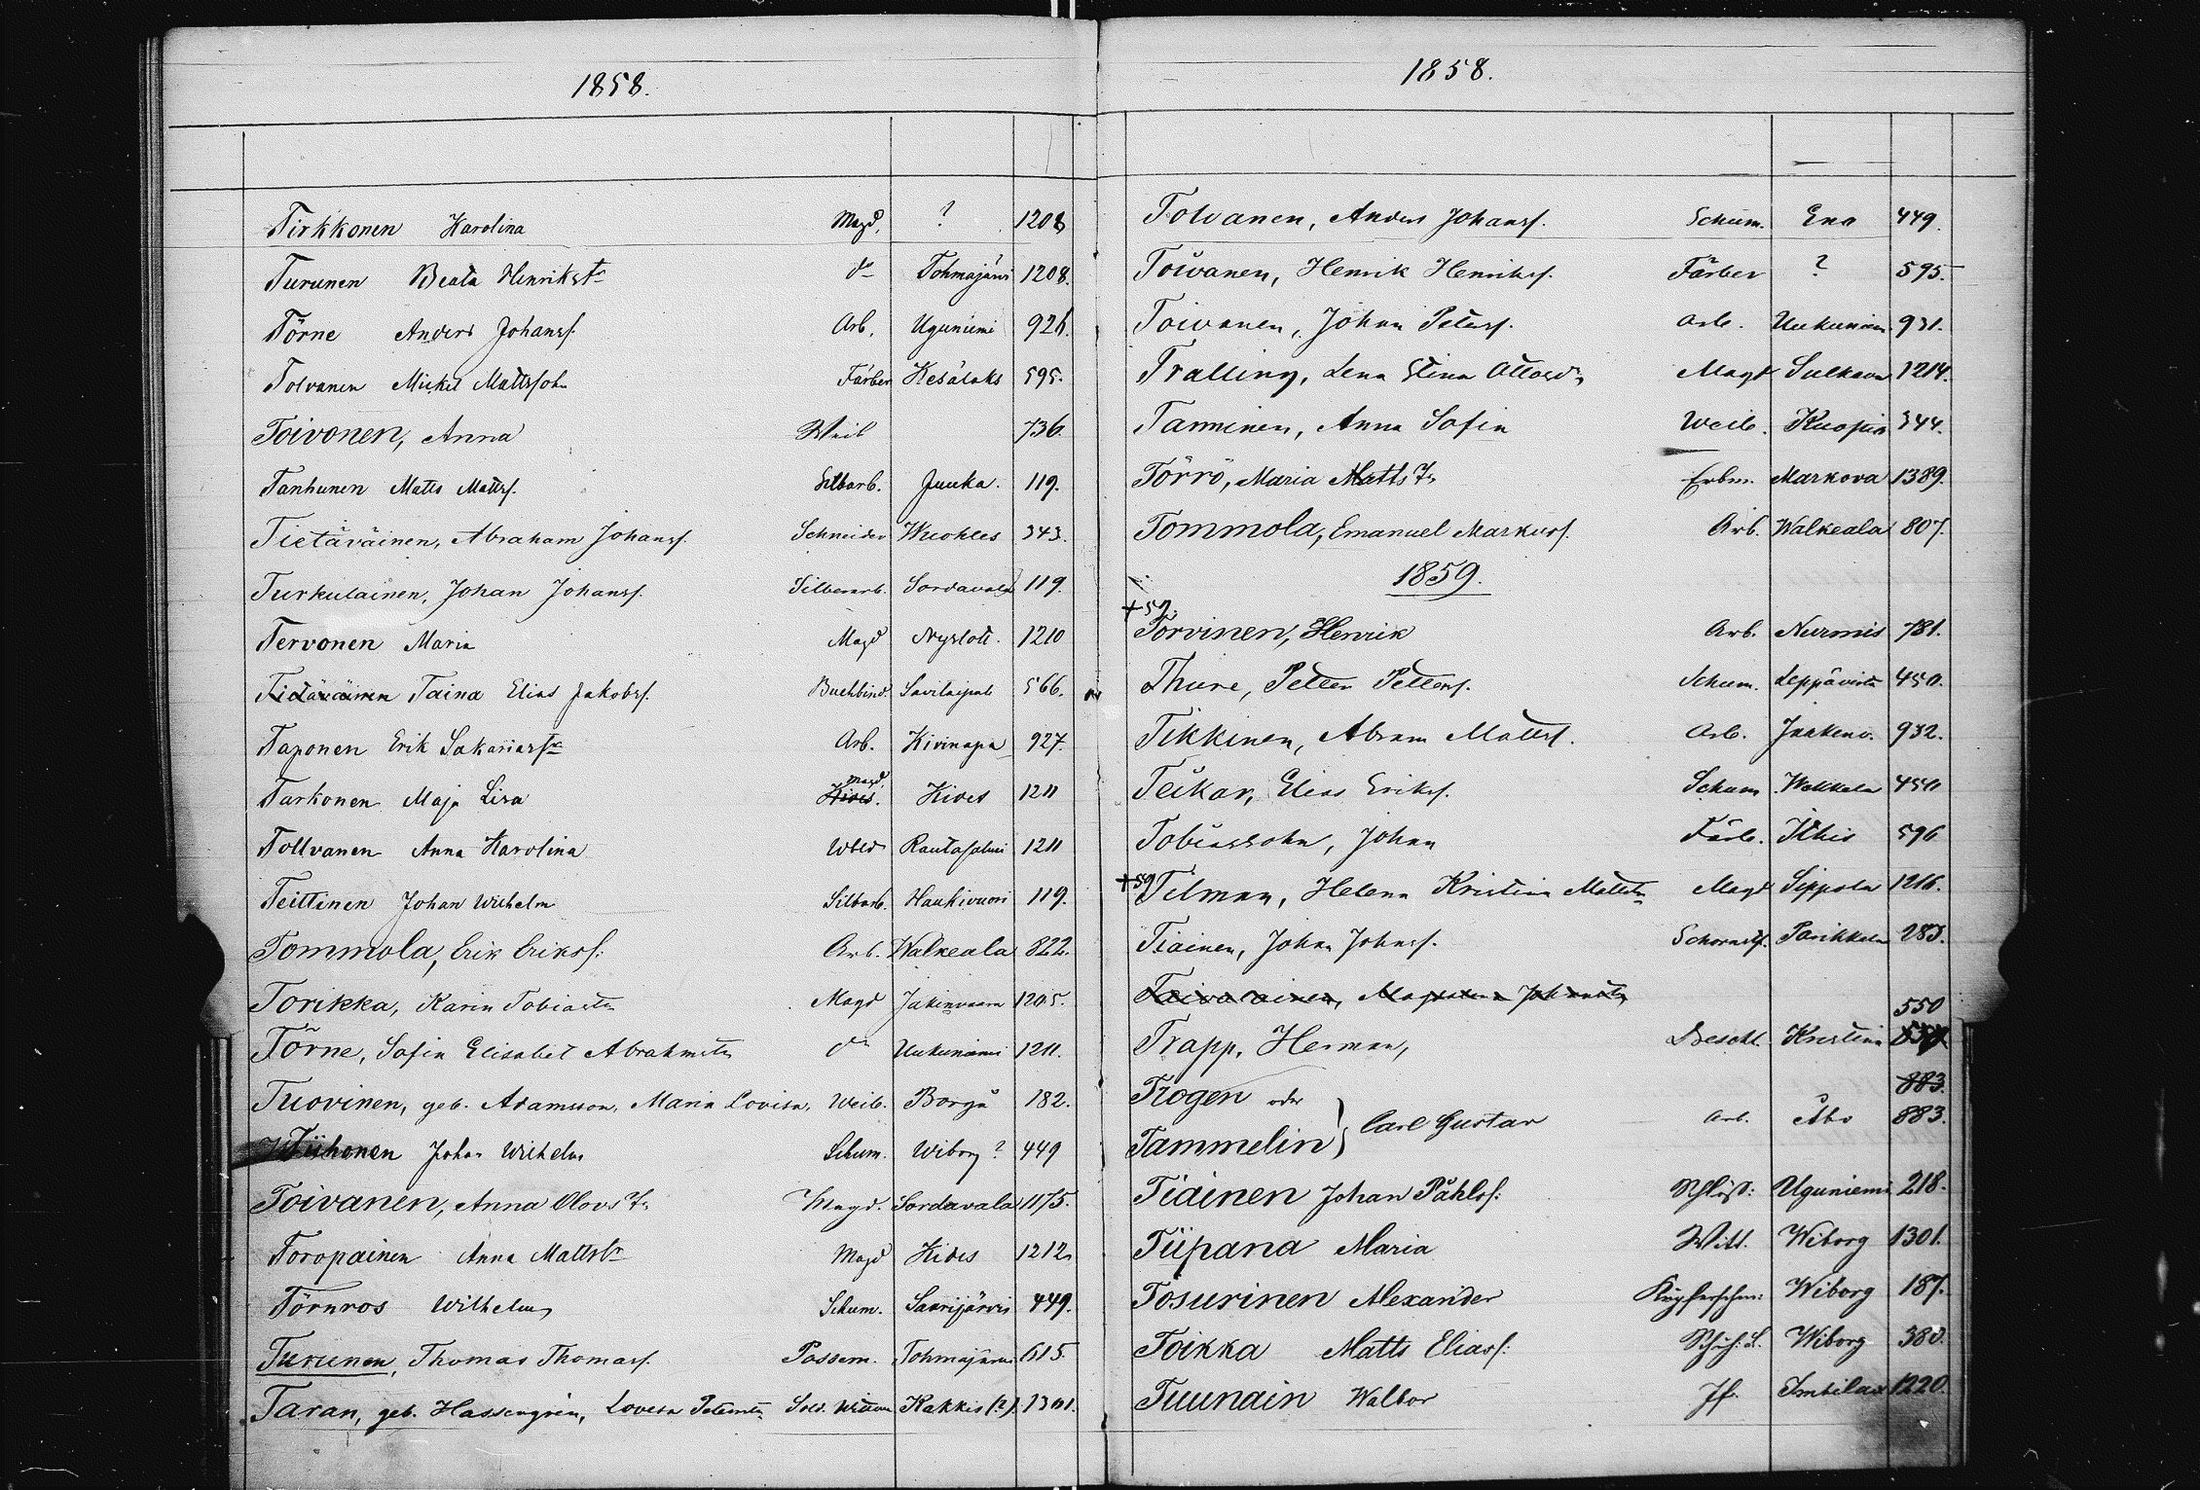 1858.
Tirkkonen Karolina Magd. ? 1208
Turunen Beata Henrikstr do Tohmajärvi 1208.
Törne Anders Johansf. Arb. Uguniemi 926.
Tolvanen Mickel Mattsson Färber Kesälaks 595.
Toivonen, Anna Weib 736.
Tanhunen Matts Mattsf. Silbarb. Juuka. 119.
Tietäväinen, Abraham Johansf. Schneider 343.
Turkulainen, Johan Johansf. Silberarb. Sordavala 119.
Tervonen Maria Magd Nyslott. 1210
Tietäväinen Taina Elias Jakobsf. Buchbind. Savitaipale 566.
Taponen Erik Sakariasf Arb. Kivinapa 927.
Tarkonen Maja Lisa Kides. Magd. Kides 1211
Tollvanen Anna Karolina Rautasalmi 1211
Teittinen Johan Wilhelm Silbarb. Haukivuori 119.
Tommola, Erik Eriksf: Arb. Walkeala 822.
Torikka, Karin Tobiastr Magd Jakimvaara 1205.
Törne, Sofia Elisabet Abrahmstr do Uukuniemi 1211.
Tuovinen, geb. Adamsson, Maria Lovisa, Weib. Borgå 182.
Tiihonen Johan Wilhelm Schum. Wiborg ? 449
Toivanen, Anna Olovs Tr Magd. Sordavala 1175.
Toropainen Anna Mattstr Magd Kides 1212
Törnros Wilhelm Schum. Saarijärvis 449.
Turunen, Thomas Thomasf. Possem. Tohmajärvi 615.
Taran, geb. Hassengren, Lovisa Peterstr Sold. Wittwe Kakkis (?) 1301.
1858.
Tolvanen, Anders Johansf. Schum. Eno 449.
Toivanen, Henrik Henriksf. Färber ? 595.
Toivanen, Johan Petersf. Arb. Uukuniem. 931.
Tralling, Lena Stina Ottosdr Magd Sulkava 1214.
Tanninen, Anna Sofia Weib. Kuopio 344.
Törrö, Maria Matts Tr Erbm. Markova 1389.
Tommola, Emanuel Markusf. Arb. Walkeala 807.
1859.
+59. Torvinen, Henrik Arb. Nurmis 781.
Thure, Petter Pettersf. Schum. Leppävirta 450.
Tikkinen, Abram Mattsf. Arb. Jaakimv. 932.
Teikar, Elias Eriksf. Schum Walkeala 450
Tobiassohn, Johan Färb. Ithis 596
+59 Tilman, Helena Kristina Mattstr Magd Sippola 1216.
Tiainen, Johan Johansf. Schornstf. Parikkala 283.
Taivalainen, Magdalena Johanstr
550
Trapp, Herman, Beschl. Kristina
883.
Trogen oder Tammelin } Carl Gustav Arb. Åbo 883.
Tiainen Johan Påhlsf: Schlöss: Uguniemi 218.
Tiipana Maria Witt. Wiborg 1301.
Tosurinen Alexander Kupferschm: Wiborg 187.
Toikka Matts Eliasf: Wiborg 380.
Tuunain Walbor Jf. Imbilax 1220.